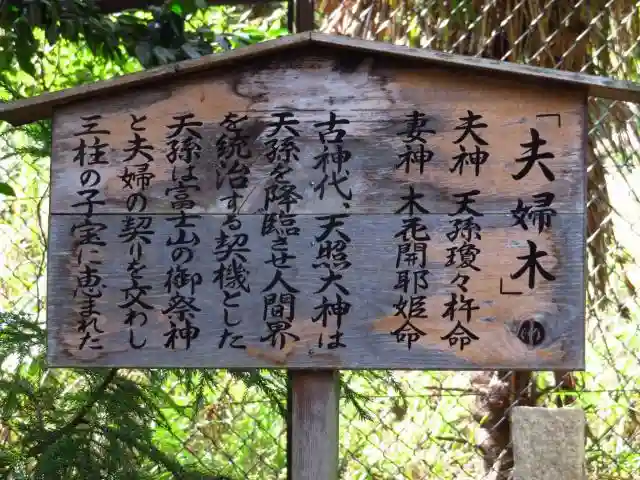 「夫婦木」
夫神 天孫瓊々杵命
妻神 木花開耶姫命
古神代、天照大神は
天孫を降臨させ人間界
を統治する契機とした
天孫は富士山の御祭神
と夫婦の契りを交わし
三柱の子宝に恵まれた